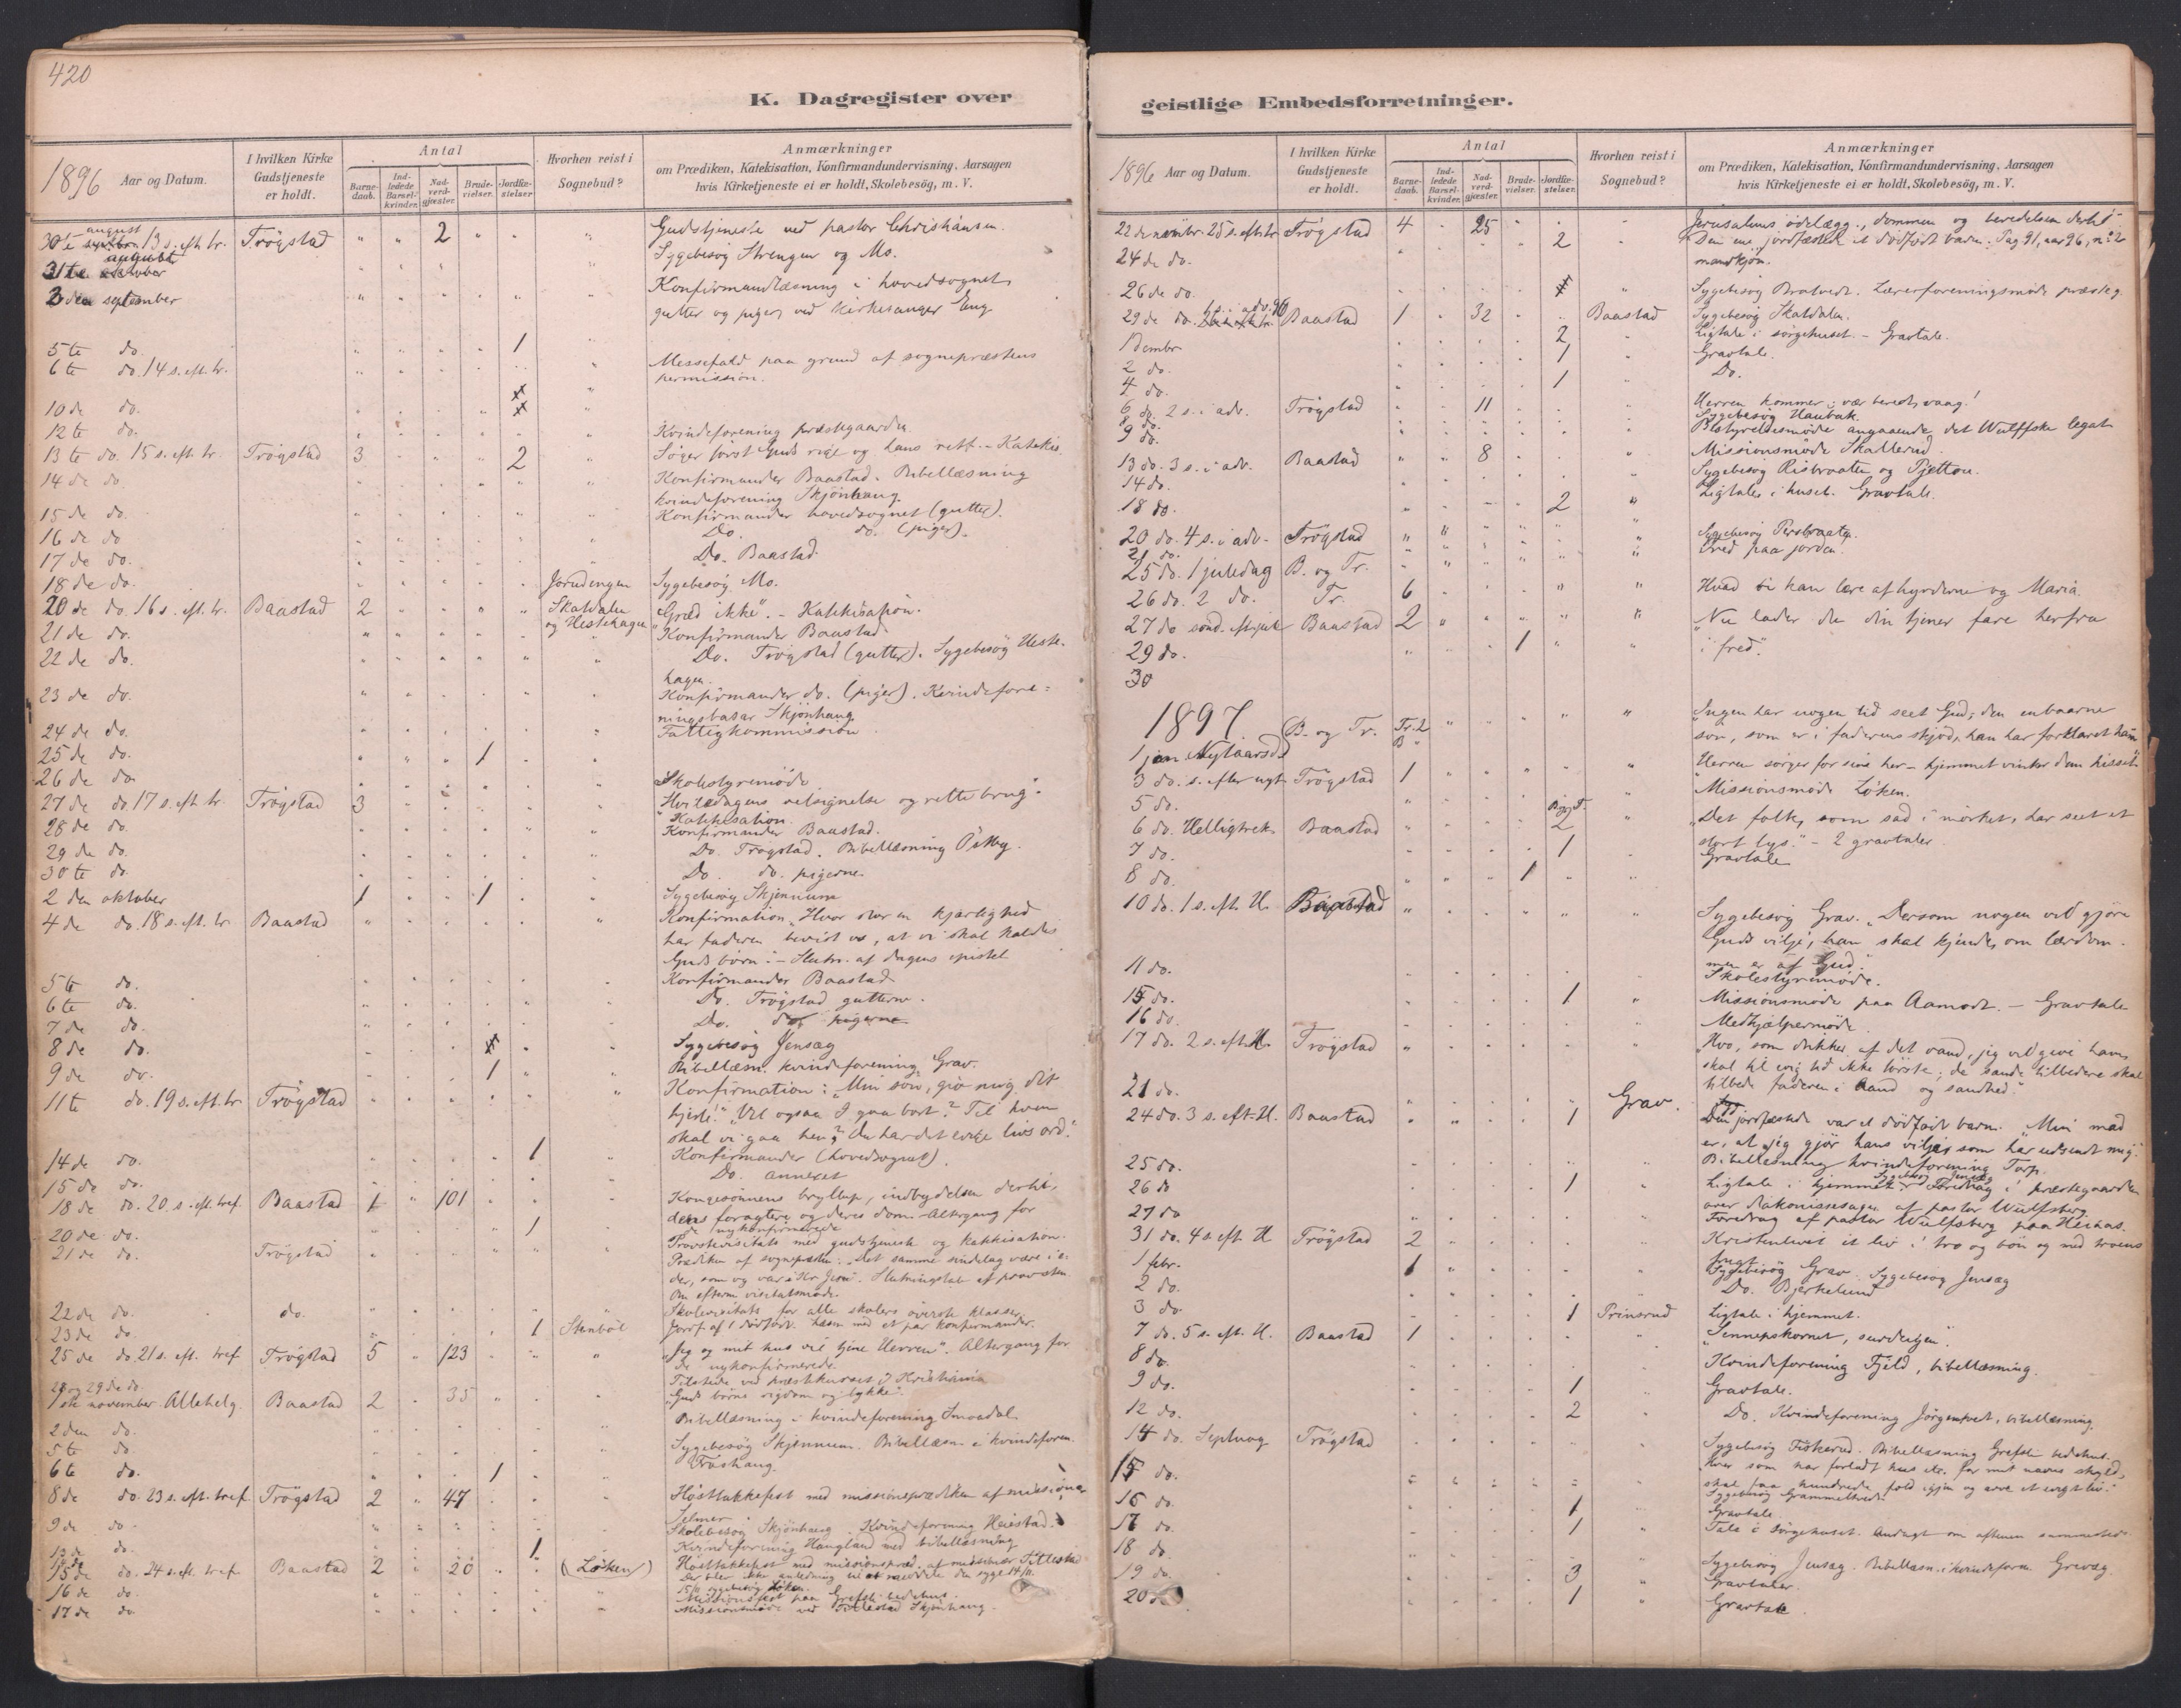 420
K. Dagregister over
1896 Aar og Datum.
I hvilken Kirke Gudstjeneste er holdt.
Antal
Barnedaab.
Indledede Barselkvinder.
Nadverdgjæster.
Brudevielser.
Jordfæstelser.
Hvorhen reist i Sognebud?
Anmærkninger
om Prædiken, Katekisation, Konfirmandundervisning, Aarsagen
hvis Kirketjeneste ei er holdt, Skolebesög, m. V.
30te august 13 s. eft. tr. Trögstad 2 Gudstjeneste ved pastor Christiansen.
31te august Sygebesög Strengen og Mo.
2den september Konfirmandlæsning i hovedsognet,
gutter og piger, ved kirkesanger Eng
5te do. 1
6te do. 14 s. eft. tr. Messefald paa grund af sogneprestens
permission.
10de do.
12te do. Kvindeforening præstegaarden
13te do. 15 s. eft. tr. Trögstad 3 2 Söger först Guds rige og hans retf. - Katekis.
14de do. Konfirmander Baastad. Bibellæsning
kvindeforening Skjönhaug.
15de do. Konfirmander hovedsognet (gutter).
16de do Do. do. (piger).
17de do. Do. Baastad.
18de do. Jorudengen Sygebesög Mo.
20de do. 16 s. eft. tr. Baastad 2 Skatdalen og Hestehagen "Græd ikke". - Katekisation.
21de do. Konfirmander Baastad
22de do. Do. Trögstad (gutter). Sygebesög Heste-
hagen.
23de do. Konfirmander do. (piger). Kvindefore-
ningsbasar Skjönhaug
24de do. Fattigkommission
25de do. 1
26de do. Skolestyremöde
27de do. 17 s. eft. tr. Trögstad 3 Hviledagens velsignelse og rette brug.
Katekisation.
28de do. Konfirmander Baastad.
29de do. Do. Trögstad. Bibellæsning
30te do. Do. do. pigerne.
2den oktober 1 1 Sygebesög Skjennum
4de do. 18 s. eft. tr Baastad Konfirmation. "Hvor stor en kjærlighed
har faderen bevist os, at vi skal kaldes
Guds börn". - af dagens epistel
5te do. Konfirmander Baastad
6te do. Do. Trögstad gutterne.
7de do. Do. do. pigerne
8de do. Sygebesög Jensæg
9de do. 1 Bibellæsn. kvindeforening Grav.
11te do. 19 s. eft. tr Trögstad Konfirmation: "Min sön, giv mig dit
hjerte!" "Vil ogsaa I gaa bort? Til hvem
skal vi gaa hen? Du har det evige livs ord."
14de do. 1 Konfirmander (hovedsognet).
15de do. Do. annexet
18de do. 20 s. eft. tref Baastad 1 101 Kongesönnens bryllup, indbydelsen dertil,
dens foragtere og deres dom. - Altergang for
de nykonfirmerede
20de do. 1
21de do. Trögstad Provstevisitats med gudstjeneste og katekisation.
Prædiken af sognepresten: "Det samme sindelag være i e-
der, som og var i Kr. Jesu". Slutningstale af provsten.
Om eftern visitatsmöde.
22de do. do. Skolevisitats for alle skolers överste klasser.
23de do 1 Stenböl Jordf. af 1 dödfödt. Læsn med et par konfirmander.
25de do. 21 s. eft. tref Trögstad 5 123 "Jeg og mit hus vil tjene Herren". Altergang for
de nykonfirmerede.
28 og 29de do. Tilstede ved præstekurset i Kristiania
1ste november Allehelg. Baastad 2 35 "Guds börns rigdom og lykke".
2den do. Bibellæsning i kvindeforening Smaadal
5te do. Sygebesög Skjennum. Bibellæsn i kvindeforen.
Frashaug.
6te do. 1
8de do. 23 s. eft. tref Trögstad 2 47 Hösttakkefest med missionsprædiken af missionær
Selmer
9de do. Skolebesög Skjönhaug. Kvindeforening Heiestad.
13de do. 1 Kvindeforening Haugland med bibellæsning
15de do. 24 s. eft. tref Baastad 2 20 (Löken) Hösttakkefest med missionspræd. af missionær Tillestad
Der blev ikke anledning til at meddele den syge 14/11.
15/11 sygebesög Löken.
16de do. Missionsfest paa Grefsli bedehus.
17de do Missionsmöde ved Tillestad Skjönhaug.
geistlige Embedsforretninger.
1896 Aar og Datum.
I hvilken Kirke Gudstjeneste er holdt.
Antal
Barnedaab.
Indledede Barselkvinder.
Nadverdgjæster.
Brudevielser.
Jordfæstelser.
Hvorhen reist i Sognebud?
Anmærkninger
om Prædiken, Katekisation, Konfirmandundervisning, Aarsagen
hvis Kirketjeneste ei er holdt, Skolebesög, m. V.
22de novmbr. 25 s. eft. tr Trögstad 4 25 Jerusalems ödelægg., dommen og beredelsen dertil
24de do. 2 Den ene jordfæstede et dödfödt barn. Pag 91, aar 96, no 2
mandkjön.
26de do. Sygebesög Bratvedt. Lærerforeningsmöde præsteg.
29de do. 1 s. i adv. 96 Baastad 1 32 Baastad Sygebesög Skatdalen.
1 dcmbr 2 Ligtale i sörgehuset. - Gravtale.
2 do. 1 Gravtale.
4 do. 1 Do.
6 do. 2 s. i adv. Trögstad 11 Herren kommer, vær beredt, vaag!
8 do. Sygebesög Haubak.
9 do. Bestyrelsesmöde angaaende det Wulffske legat
13 do. 3 s. i adv. Baastad 8 Missionsmöde Skallerud.
14 do. Sygebesög Risbraaten og Tjetton.
18 do. 2 Ligtale i huset. Gravtale.
20 do. 4 s. i adv. Trögstad
21 do. Sygebesög Persbraaten.
25 do. 1 juledag B. og Tr. Fred paa jorden.
26 do. 2 do. Tr. 6 Hvad vi kan lære af hyrderne og Maria.
27 do sönd. eft. jul Baastad 2 "Nu lader du din tjener fare herfra
29 do. 1 i fred".
30
1897
1 jan Nytaarsd B. og Tr. Tr. 2 B " "Ingen har nogen tid seet Gud; den enbaarne
sön, som er i faderens skjöd, han har forklaret ham"
3 do. s. efter nyt Trögstad 1 Herren sörger for sine her - hjemmet vinker dem hisset
5 do. Missionsmöde Löken.
6 do. Helligtrek. Baastad 2 "Det folk, som sad i mörket, har seet et
stort lys." - 2 gravtaler
7 do. 1 Gravtale
8 do. 1
10 do. 1 s. eft. H. Baastad Sygebesög Grav. "Dersom nogen vil gjöre
Guds vilje, han skal kjende, om lærdom-
men er af Gud".
11 do. Skolestyremöde.
15 do. 1 Missionsmöde paa Aamodt. - Gravtale
16 do. Medhjælpermöde
17 do. 2 s. eft. H. Trögstad "Hvo, som drikker af det vand, jeg vil give ham,
skal til evig tid ikke törste; de sande tilbedere skal
tilbede faderen i aand og sandhed."
21 do. Grav.
24 do. 3 s. eft. H. Baastad 1 Den jordfæstede var et dödfödt barn. "Min mad
er, at jeg gjör hans vilje, som har udsendt mig."
25 do. Bibellæsning kvindeforening Torp.
26 do 1 Ligtale i hjemmet. Sygebesög Jensæg Foredrag i præstegaarden
over diakonissesagen af pastor Wulfsberg.
27 do Foredrag af pastor Wulfsberg paa Heiaas.
31 do. 4 s. eft. H Trögstad 2 Kristenlivet et liv i tro og bön og med troens
frugt.
1 febr. 1 Sygebesög Grav. Sygebesög Jensæg
2 do. Do. Bjerkelund
3 do. 1 Prinsrud Ligtale i hjemmet.
7 do. 5 s. eft. H. Baastad 1 "Sennepskornet, surdeigen".
8 do. Kvindeforening Fjeld, bibellæsning.
9 do. 1 Gravtale.
12 do. 2 Do. Kvindeforening Jörgentvedt, bibellæsning.
14 do. Septuag Trögstad Sygebesög Fiskerud. Bibellæsning Grefsli bedehus.
"Hver som har forladt hus etc. for mit navns skyld,
skal faa hundrede fold igjen og arve et evigt liv."
15 do. Sygebesög Grammeltvedt
16 do. 1 Gravtale
17 do. 1 Tale i sörgehuset. Andagt om aftenen sammesteds.
18 do.
19 do. 3 Sygebesög Jensæg. Bibellæsn. i kvindeforen Grevæg.
Gravtaler.
20 do. 1 Gravtale